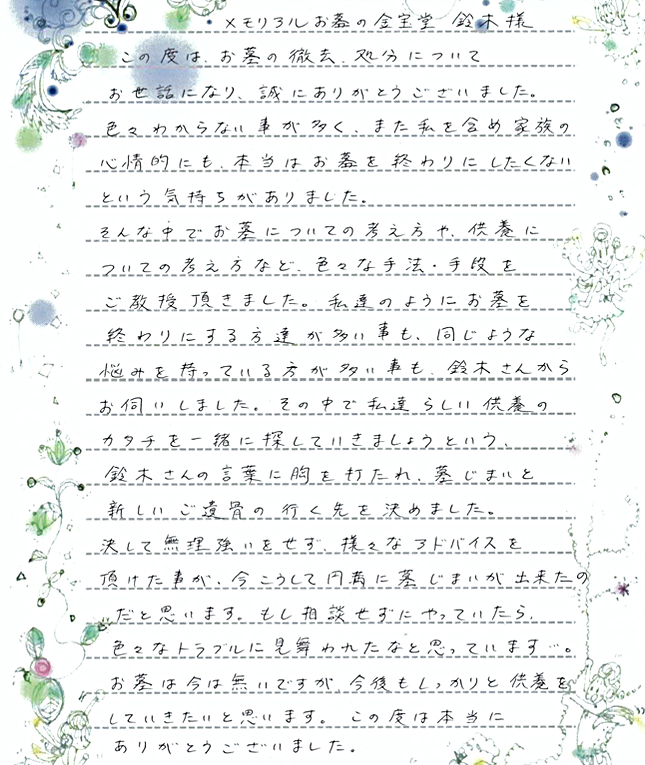 メモリアルお墓の金宝堂 鈴木様
この度は、お墓の撤去、処分について
お世話になり、誠にありがとうございました。
色々わからない事が多く、また私を含め家族の
心情的にも、本当はお墓を終わりにしたくない
という気持ちがありました。
そんな中でお墓についての考え方や、供養に
ついての考え方など、色々な手法・手段を
ご教授頂きました。私達のようにお墓を
終わりにする方達が多い事も、同じような
悩みを持っている方が多い事も、鈴木さんから
お伺いしました。その中で私達らしい供養の
カタチを一緒に探していきましょうという、
鈴木さんの言葉に胸を打たれ、墓じまいと
新しいご遺骨の行く先を決めました。
決して無理強いをせず、様々なアドバイスを
頂けた事が、今こうして円満に墓じまいが出来たの
だと思います。もし相談せずにやっていたら、
色々なトラブルに見舞われたなと思っています…。
お墓は今は無いですが、今後もしっかりと供養を
していきたいと思います。この度は本当に
ありがとうございました。